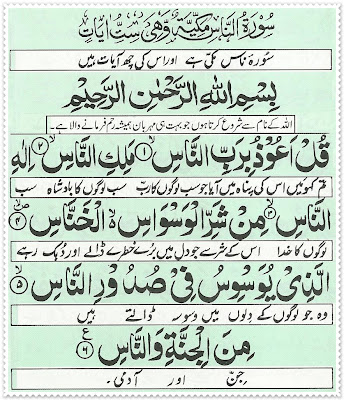 سُوْرَةُ النَّاسِ مَكِّيَّةٌ وَّهِیَ سِتُّ اٰیَاتٍ
سُورۂ ناس مکی ہے اور اس کی چھ آیات ہیں
بِسْمِ اللّٰهِ الرَّحْمٰنِ الرَّحِیْمِ
اللہ کے نام سے شروع کرتا ہوں جو بہت ہی مہربان ہمیشہ رحم فرمانے والا ہے۔
قُلْ اَعُوْذُ بِرَبِّ النَّاسِ ۙ﴿۱﴾ مَلِكِ النَّاسِ ۙ﴿۲﴾ اِلٰهِ
تم کہو میں اس کی پناہ میں آیا جو سب لوگوں کا رب سب لوگوں کا بادشاہ سب
النَّاسِ ۙ﴿۳﴾ مِنْ شَرِّ الْوَسْوَاسِ ۙ۬ الْخَنَّاسِ ۪ۙ﴿۴﴾
لوگوں کا خدا اس کے شر سے جو دل میں بُرے خطرے ڈالے اور دُبک رہے
الَّذِیْ یُوَسْوِسُ فِیْ صُدُوْرِ النَّاسِ ۙ﴿۵﴾
وہ جو لوگوں کے دِلوں میں وسوسے ڈالتے ہیں
مِنَ الْجِنَّةِ وَالنَّاسِ ﴿۶﴾ ع
جِنّ اور آدمی۔